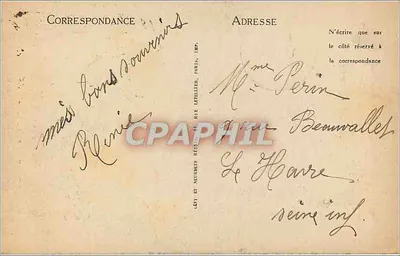 CORRESPONDANCE
ADRESSE
N'écrire que sur
le côté réservé à
la correspondance
mes bons souvenirs
Renée
Mme Perin
rue Beauvallet
Le Havre
seine inf
LÉVY ET NEURDEIN RÉUNIS, 44, RUE LETELLIER, PARIS, IMP.
CPAPHIL